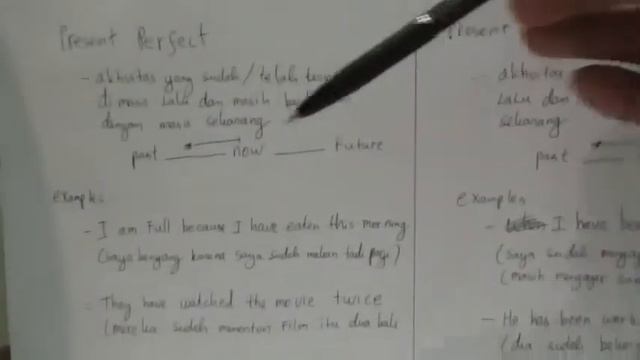 Present Perfect
- aktivitas yang sudah/telah
di masa lalu dan masih
dengan masa sekarang
past now Future
Example:
- I am Full because I have eaten this morning
(saya kenyang karena saya sudah makan tadi pagi)
- They have watched the movie twice
(mereka sudah menonton Film itu dua kali
Present
- aktivitas
Lalu dan
sekarang
past
Examples
- I have
(saya sudah
(masih mengajar
- He has been
(dia sudah